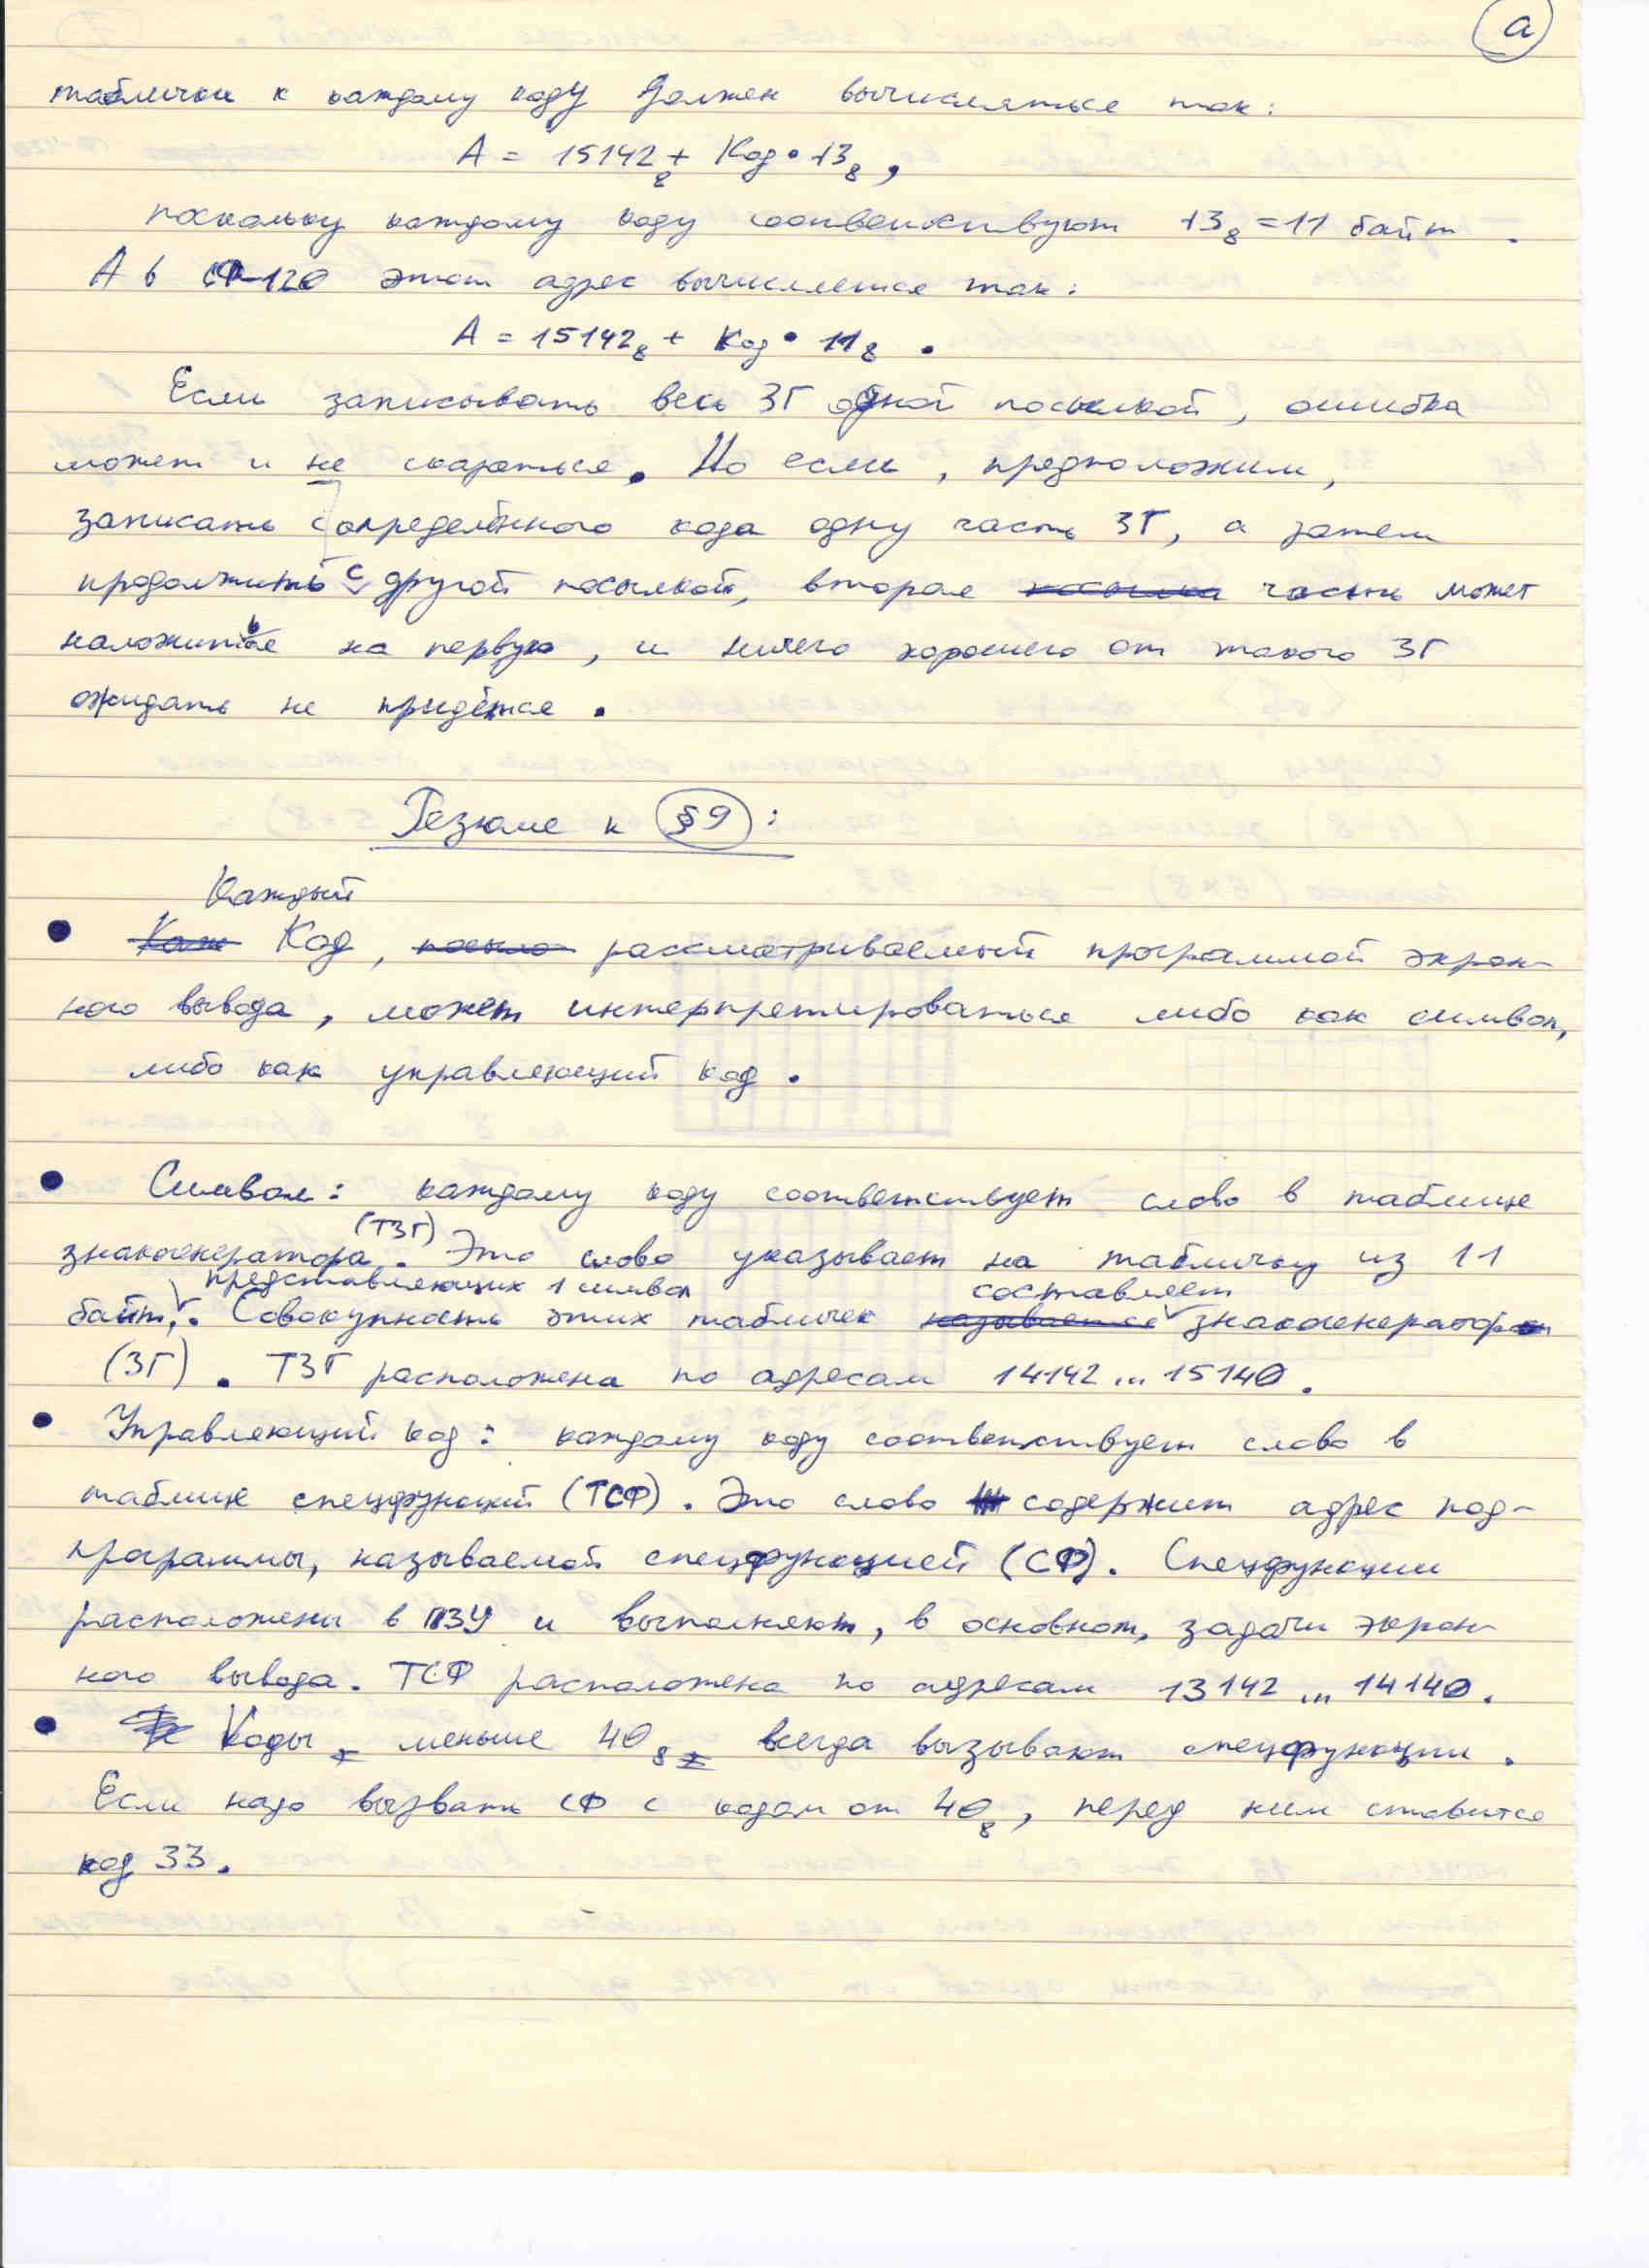 а
таблички к каждому коду должен вычисляться так:
А = 15142₈ + Код • 13₈,
поскольку каждому коду соответствуют 13₈ = 11 байт.
А в СФ-120 этот адрес вычисляется так:
А = 15142₈ + Код • 11₈.
Если записывать весь ЗГ одной посылкой, ошибка
может и не сказаться. Но если, предположим,
записать с определённого кода одну часть ЗГ, а затем
продолжить с другой посылкой, вторая посылка часть может
наложиться на первую, и ничего хорошего от такого ЗГ
ожидать не придётся.
Резюме к §9:
Каждый
• Каж Код, рассматриваемый программой экран-
ного вывода, может интерпретироваться либо как символ,
либо как управляющий код.
• Символ: каждому коду соответствует слово в таблице
(ТЗГ)
знакогенератора. Это слово указывает на табличку из 11
представляющих 1 символ составляет
байт,. Совокупность этих табличек называется знакогенератор
(ЗГ). ТЗГ расположена по адресам 14142...15140.
• Управляющий код: каждому коду соответствует слово в
таблице спецфункций (ТСФ). Это слово содержит адрес под-
программы, называемой спецфункцией (СФ). Спецфункции
расположены в ПЗУ и выполняют, в основном, задачи экран-
ного вывода. ТСФ расположена по адресам 13142...14140.
• Коды, меньше 40₈, всегда вызывают спецфункции.
Если надо вызвать СФ с кодом от 40₈, перед ним ставится
код 33.